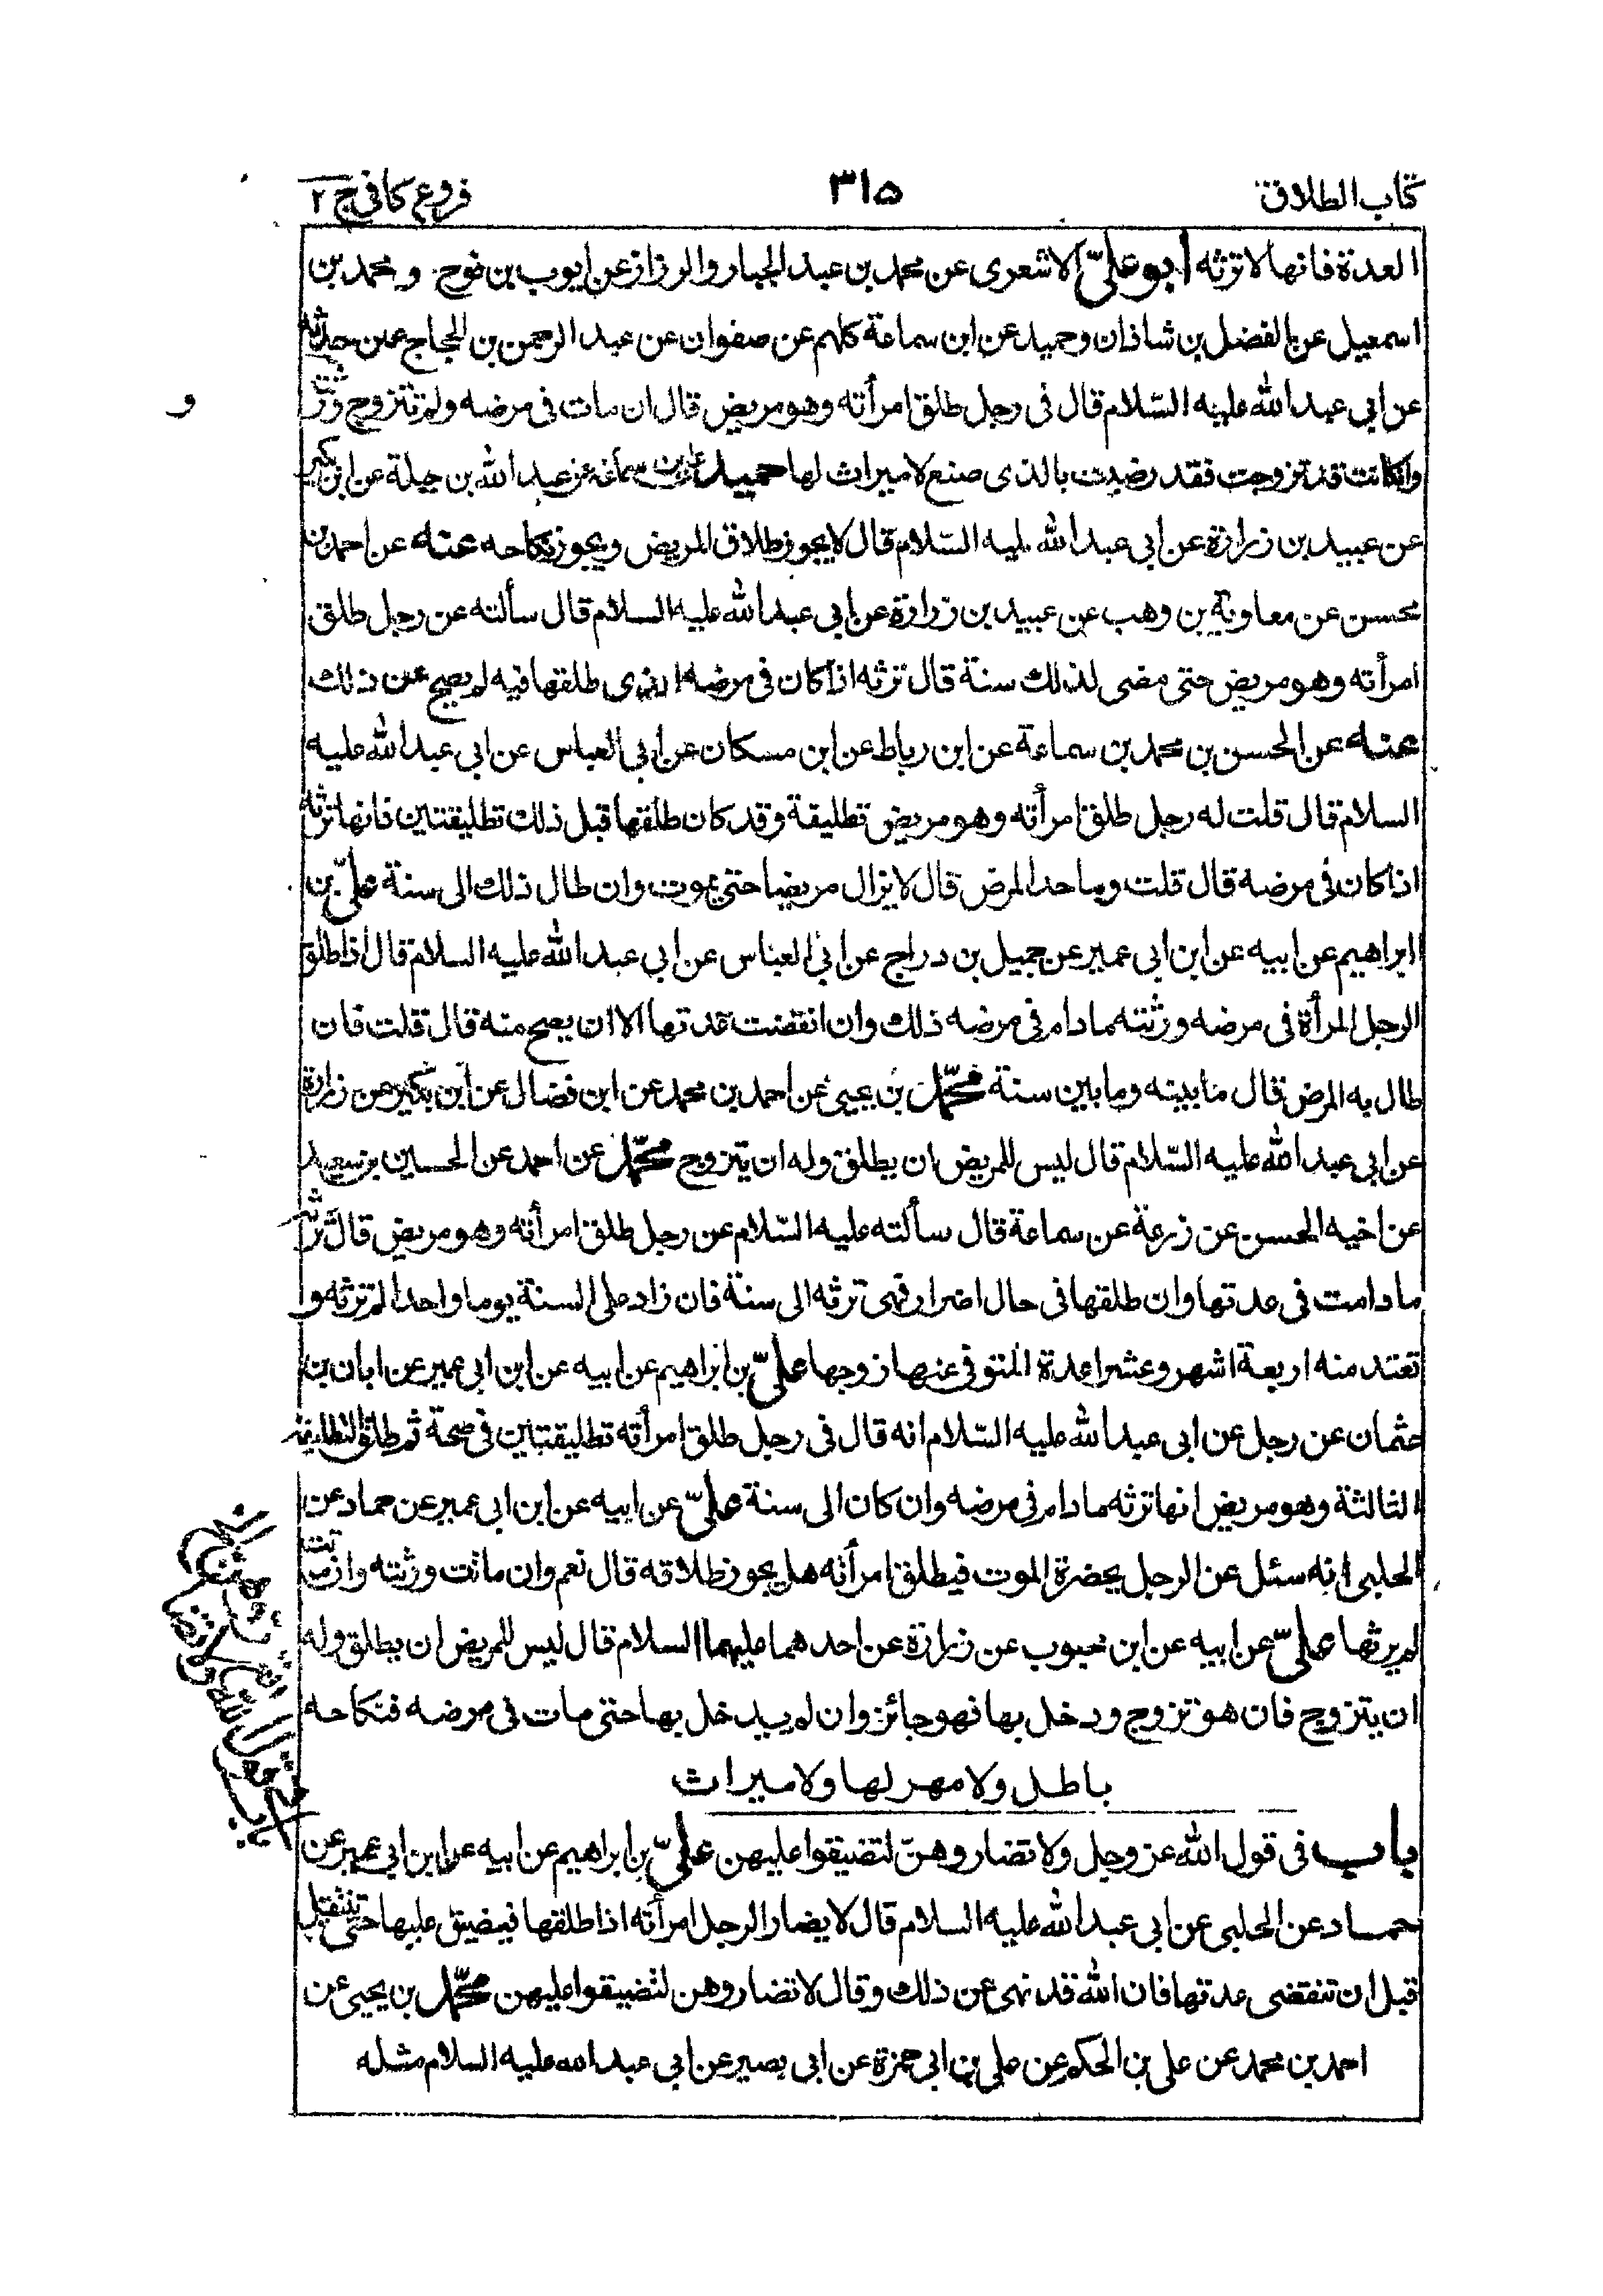 كتاب الطلاق ٣١٥ فروع كافى ج ٢
العدة فانها لا ترثه ابو علىّ الاشعرى عن محمد بن عبد الجبار والرزاز عن ايوب بن نوح و محمد بن
اسمعيل عن الفضل بن شاذان وحميد عن ابن سماعة كلهم عن صفوان عن عبد الرحمن بن الحجاج عمن حدثه
عن ابى عبد الله عليه السّلام قال فى رجل طلق امرأته وهو مريض قال ان مات فى مرضه ولم تتزوج ورثته
وان كانت قد تزوجت فقد رضيت بالذى صنع لا ميراث لها حميد عن ابن سماعة عن عبد الله بن جبلة عن ابن بكير
عن عبيد بن زرارة عن ابى عبد الله عليه السّلام قال لا يجوز طلاق المريض ويجوز نكاحه عنه عن احمد بن
محسن عن معاوية بن وهب عن عبيد بن زرارة عن ابى عبد الله عليه السلام قال سألته عن رجل طلق
امرأته وهو مريض حتى مضى لذلك سنة قال ترثه اذا كان فى مرضه الذى طلقها فيه لم يصح عن ذلك
عنه عن الحسن بن محمد بن سماعة عن ابن رباط عن ابن مسكان عن ابى العباس عن ابى عبد الله عليه
السلام قال قلت له رجل طلق امرأته وهو مريض تطليقة وقد كان طلقها قبل ذلك تطليقتين فانها ترثه
اذا كان فى مرضه قال قلت وما حد المرض قال لا يزال مريضا حتى يموت وان طال ذلك الى سنة علىّ بن
ابراهيم عن ابيه عن ابن ابى عمير عن جميل بن دراج عن ابى العباس عن ابى عبد الله عليه السلام قال اذا طلق
الرجل المرأة فى مرضه ورثته مادام فى مرضه ذلك وان انقضت عدتها الا ان يصح منه قال قلت فان
طال به المرض قال ما بينه وما بين سنة محمّد بن يحيى عن احمد بن محمد عن ابن فضال عن ابن بكير عن زرارة
عن ابى عبد الله عليه السّلام قال ليس للمريض ان يطلق وله ان يتزوج محمّد عن احمد عن الحسين بن سعيد
عن اخيه الحسن عن زرعة عن سماعة قال سألته عليه السّلام عن رجل طلق امرأته وهو مريض قال ترثه
ما دامت فى عدتها وان طلقها فى حال اضرار فهى ترثه الى سنة فان زاد على السنة يوما واحدا لم ترثه و
تعتد منه اربعة اشهر وعشرا عدة المتوفى عنها زوجها علىّ بن ابراهيم عن ابيه عن ابن ابى عمير عن ابان بن
عثمان عن رجل عن ابى عبد الله عليه السّلام انه قال فى رجل طلق امرأته تطليقتين فى صحة ثم طلق التطليقة
الثالثة وهو مريض انها ترثه مادام فى مرضه وان كان الى سنة علىّ عن ابيه عن ابن ابى عمير عن حماد عن
الحلبى انه سئل عن الرجل يحضرة الموت فيطلق امرأته هل يجوز طلاقه قال نعم وان مات ورثته وان ماتت
لم يرثها علىّ عن ابيه عن ابن محبوب عن زرارة عن احدهما عليهما السلام قال ليس للمريض ان يطلق وله
ان يتزوج فان هو تزوج ودخل بها فهو جائز وان لم يدخل بها حتى مات فى مرضه فنكاحه
باطل ولا مهر لها ولا ميراث
باب فى قول الله عز وجل ولا تضاروهنّ لتضيقوا عليهن علىّ بن ابراهيم عن ابيه عن ابن ابى عمير عن
حماد عن الحلبى عن ابى عبد الله عليه السلام قال لا يضار الرجل امرأته اذا طلقها فيضيق عليها حتى تنتقل
قبل ان تنقضى عدتها فان الله قد نهى عن ذلك وقال لا تضاروهن لتضيقوا عليهن محمّد بن يحيى عن
احمد بن محمد عن على بن الحكم عن على بن ابى حمزة عن ابى بصير عن ابى عبد الله عليه السلام مثله
و